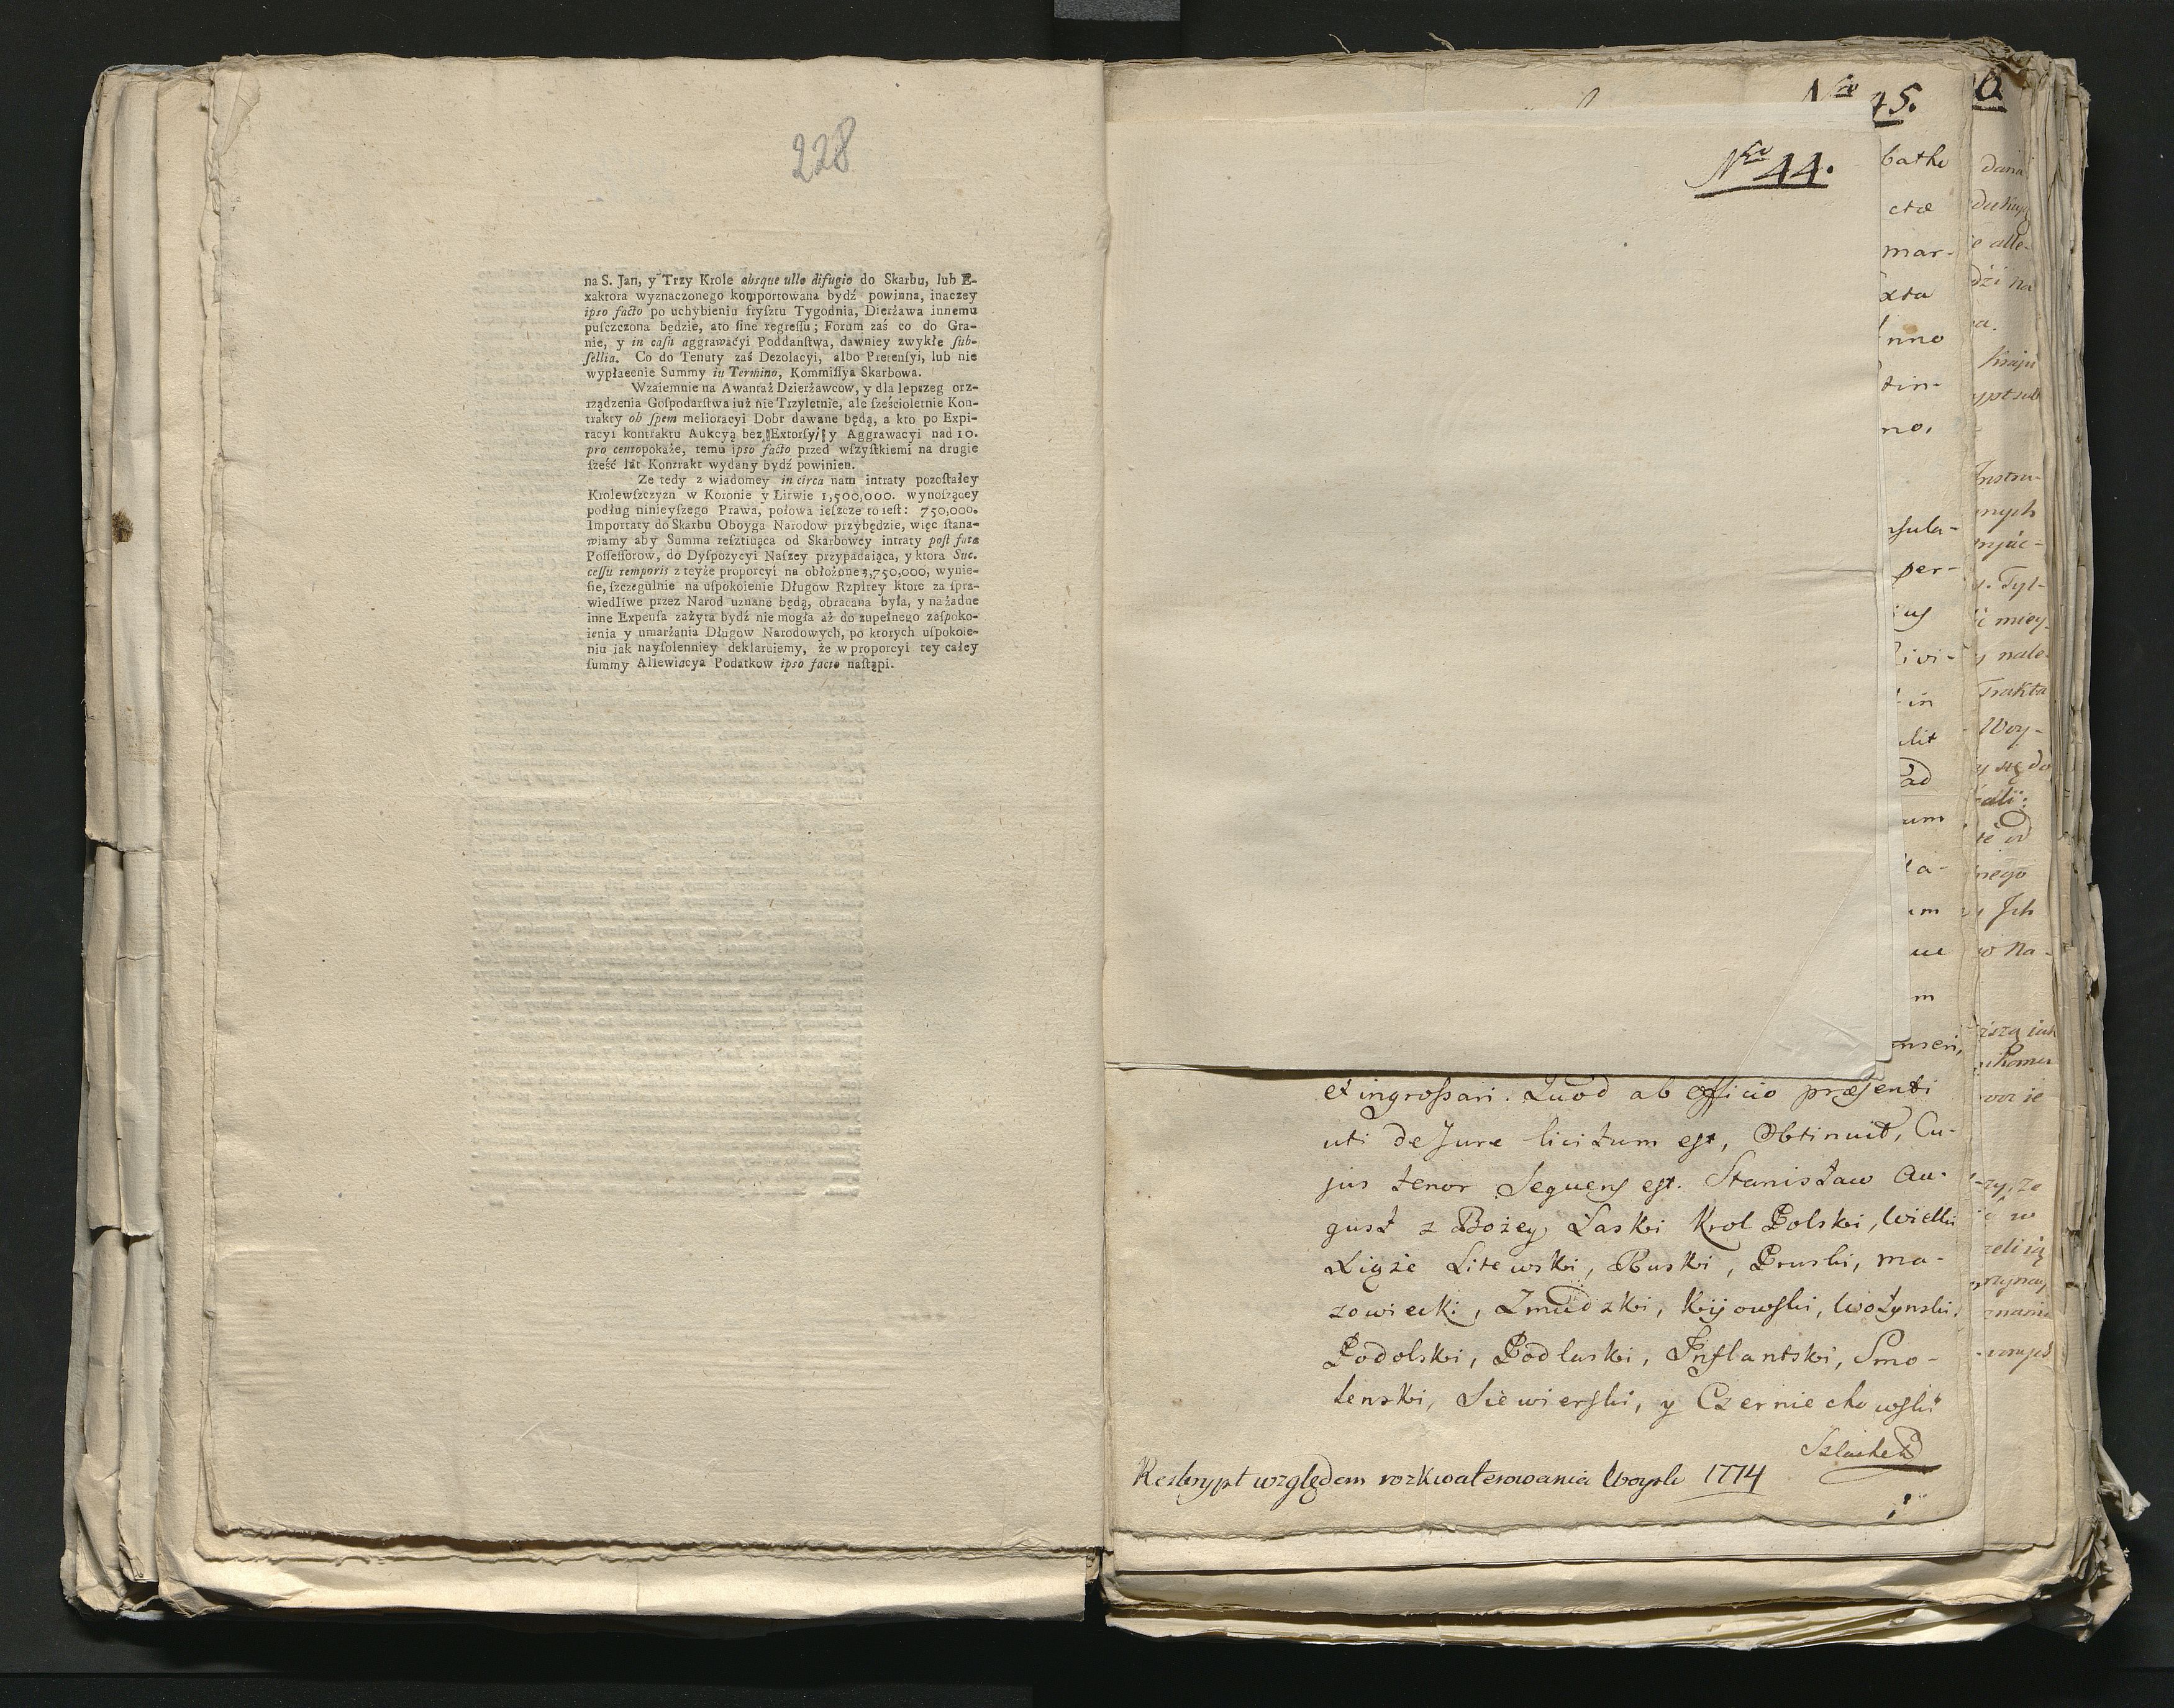 228
na S. Jan, y Trzy Krole absque ullo difugio do Skarbu, lub E-
xaktora wyznaczonego komportowana bydź powinna, inaczey
ipso facto po uchybieniu fryſztu Tygodnia, Dierżawa innemu
puſzczona będzie, ato ſine regreſſu; Forum zaś co do Gra-
nie, y in caſu aggrawacyi Poddanſtwa, dawniey zwykłe ſub-
ſellia. Co do Tenuty zaś Dezolacyi, albo Pretenſyi, lub nie
wypłaeenie Summy in Termino, Kommiſſya Skarbowa.
Wzaiemnie na Awantaż Dzierżawcow, y dla lepszeg orz-
rządzenia Goſpodarſtwa iuż nie Trzyletnie, ale ſześcioletnie Kon-
trakty ob ſpem melioracyi Dobr dawane będą, a kto po Expi-
racyi kontraktu Aukcyą bez Extorſyi y Aggrawacyi nad 10.
pro centopokaże, temu ipso facto przed wſzyſtkiemi na drugie
ſześć lat Kontrakt wydany bydź powinien.
Ze tedy z wiadomey in circa nam intraty pozoſtałey
Krolewſzczyzn w Koronie y Litwie 1,500,000. wynoſzącey
podług ninieyſzego Prawa, połowa ieſzcze to ieſt: 750,000.
Importaty do Skarbu Oboyga Narodow przybędzie, więc ſtana-
wiamy aby Summa reſztiuąca od Skarbowey intraty poſt fata
Poſſeſſorow, do Dyſpozycyi Naſzey przypadaiąca, y ktora Suc-
ceſſu temporis z teyże proporcyi na obłożone 3,750,000, wynie-
ſie, ſzczegulnie na uſpokoienie Długow Rzpltey ktore za ſpra-
wiedliwe przez Narod uznane będą, obracana była, y na żadne
inne Expenſa zażyta bydź nie mogła aż do zupełnego zaſpoko-
ienia y umarżania Długow Narodowych, po ktorych uſpokoie-
niu iak nayſolenniey deklaruiemy, że w proporcyi tey całey
ſummy Allewiacya Podatkow ipso facto naſtąpi.
Nro 45.
Nro 44.
et ingroſsari. Quod ab officio præſenti
uti de Jure licitum eſt, Obtinuit, Cu-
jus tenor Sequens eſt. Stanisław Au-
guſt z Bożey Łaski Krol Polski, Wielki
Xiąże Litewski, Ruski, Pruski, Ma-
zowiecki, Zmudzki, Kijowski, Wołynski,
Podolski, Podlaski, Inflantski, Smo-
lenski, Siewierski, y Czerniechowski
Reskrypt względem rozkwaterowania Woysk 1774